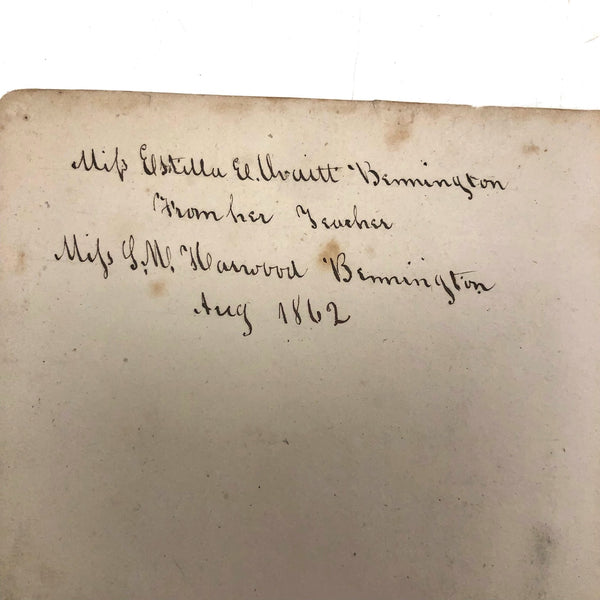 Miſs Estilla E. Bennington
From her Teacher
Miſs S.M. Harwood Bennington
Aug 1862